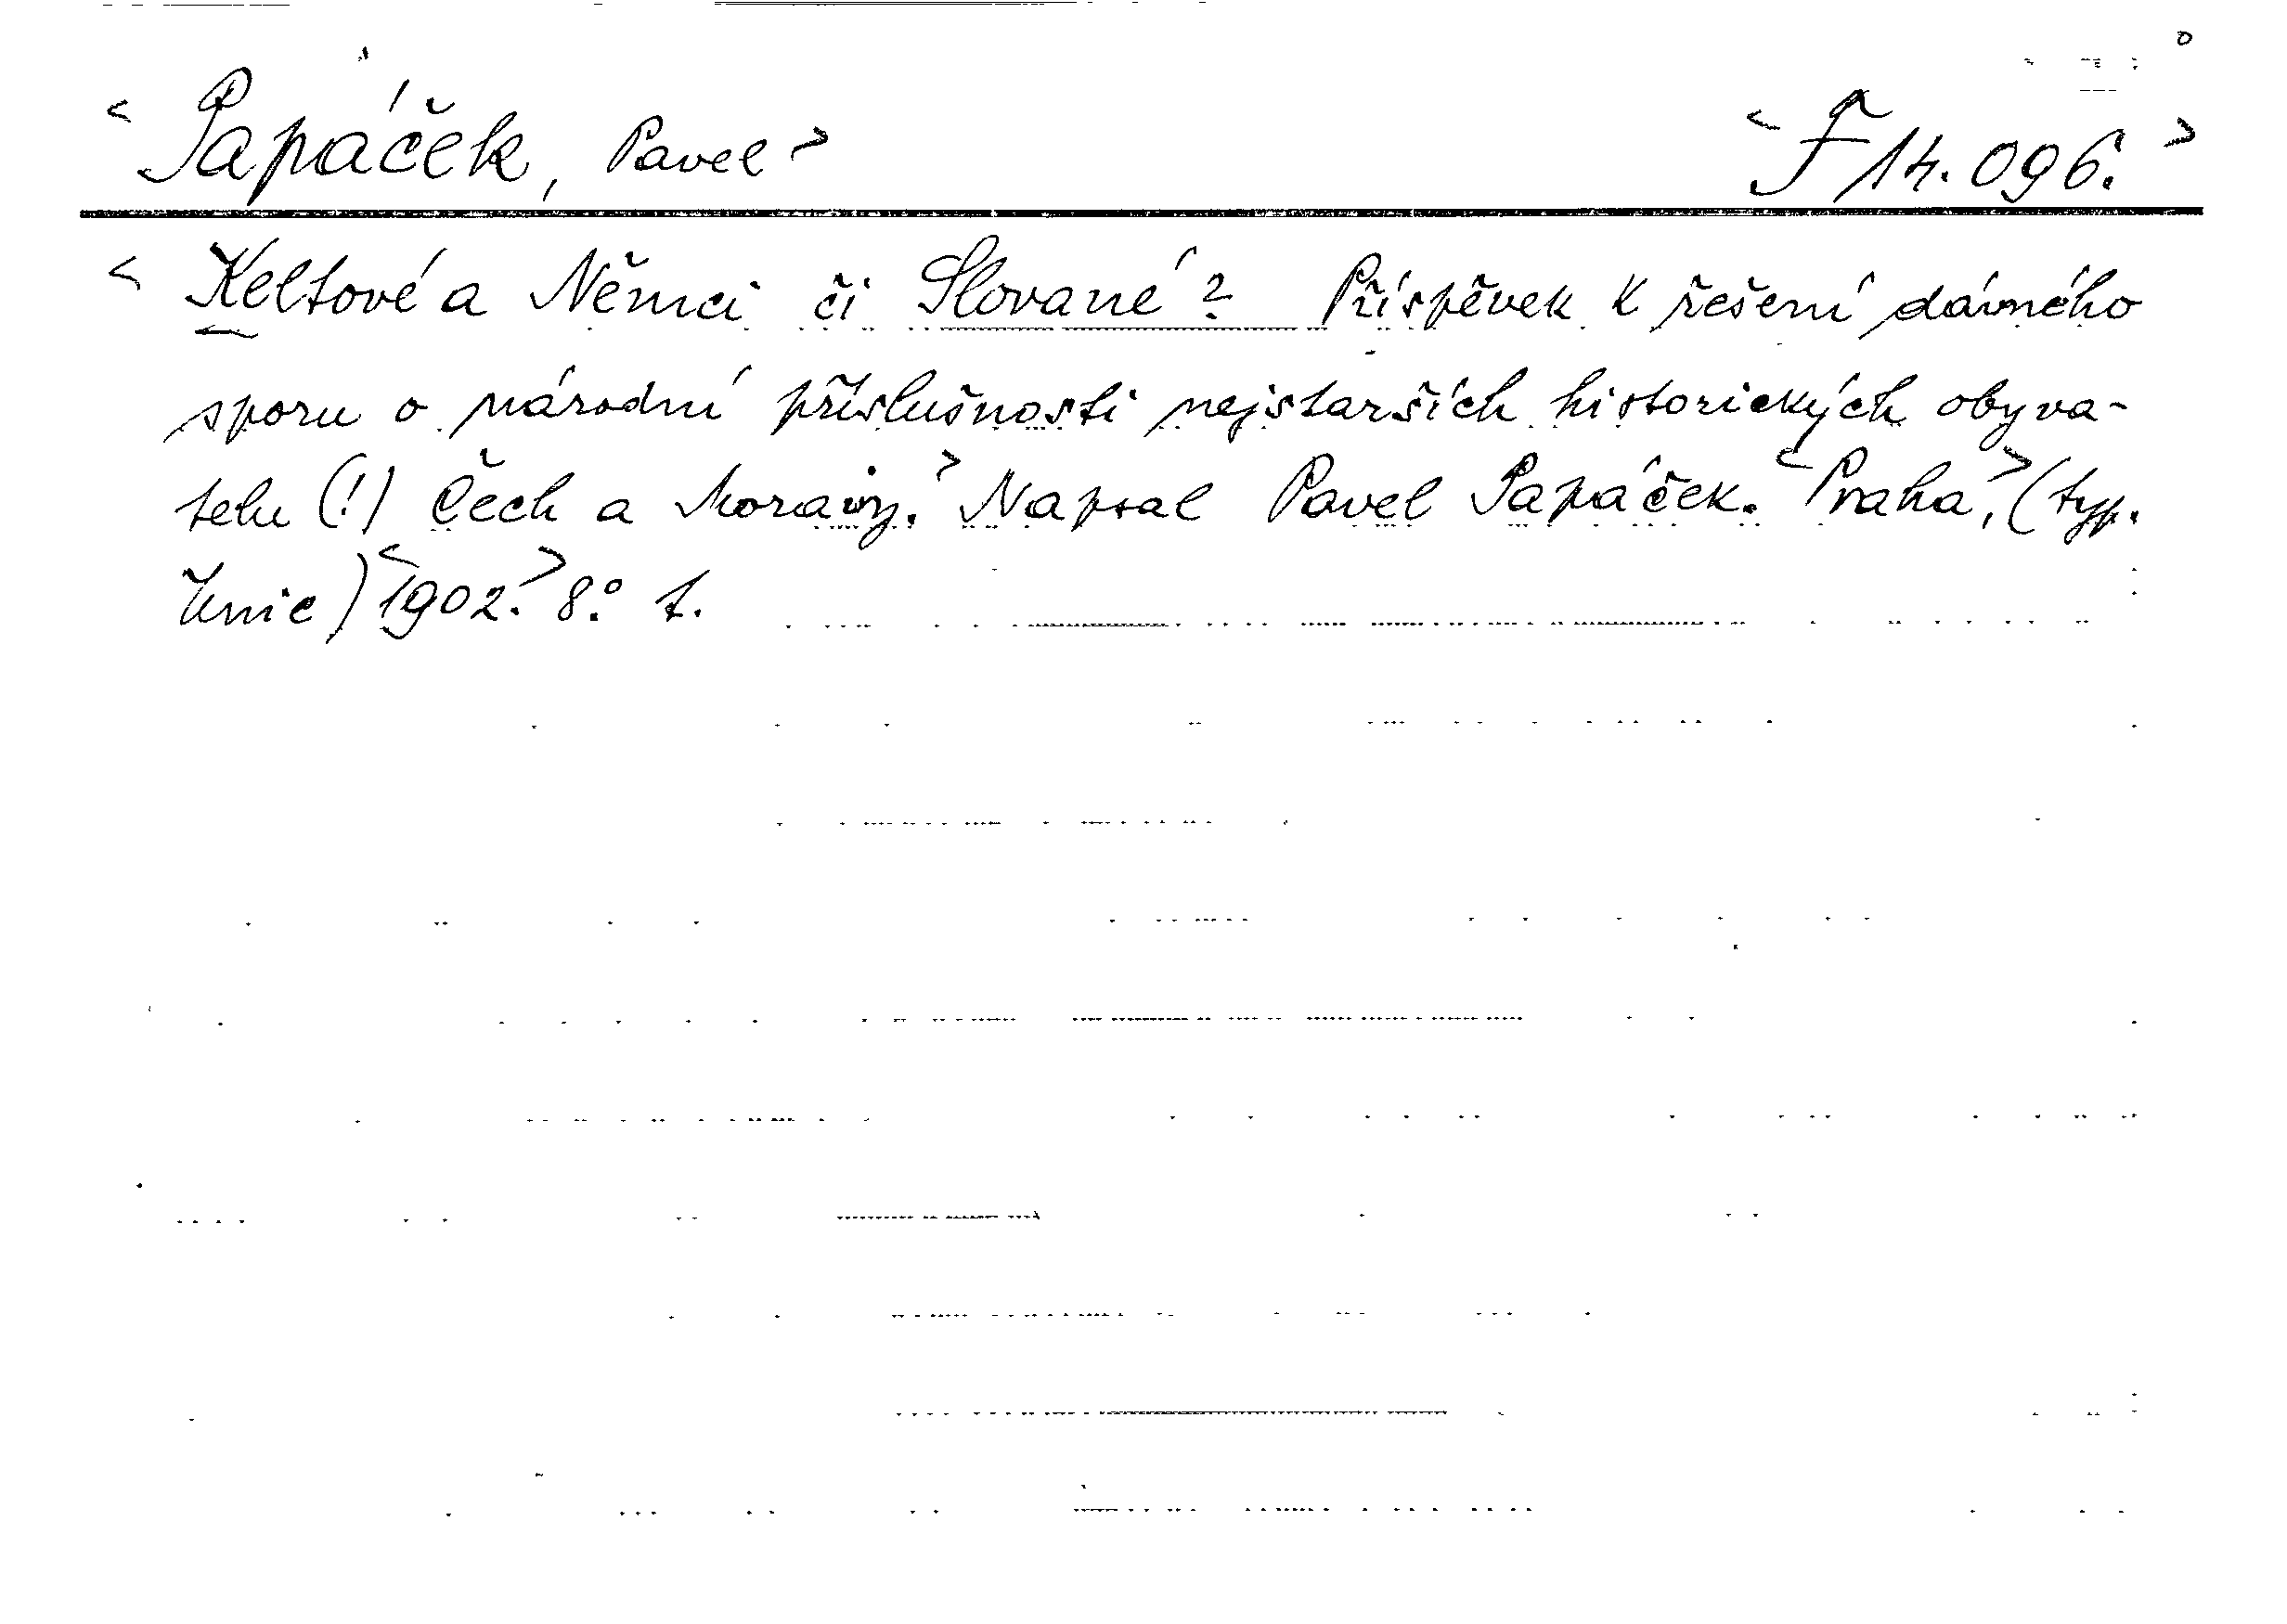 < Papáček, Pavel > < F 14.096. >
< Keltové a Němci či Slované? Příspěvek k řešení dávného
sporu o národní příslušnosti nejstarších historických obyva-
telu (!) Čech a Moravy. > Napsal Pavel Papáček. < Praha, > (typ.
Unie) < 1902. > 8.° 1.